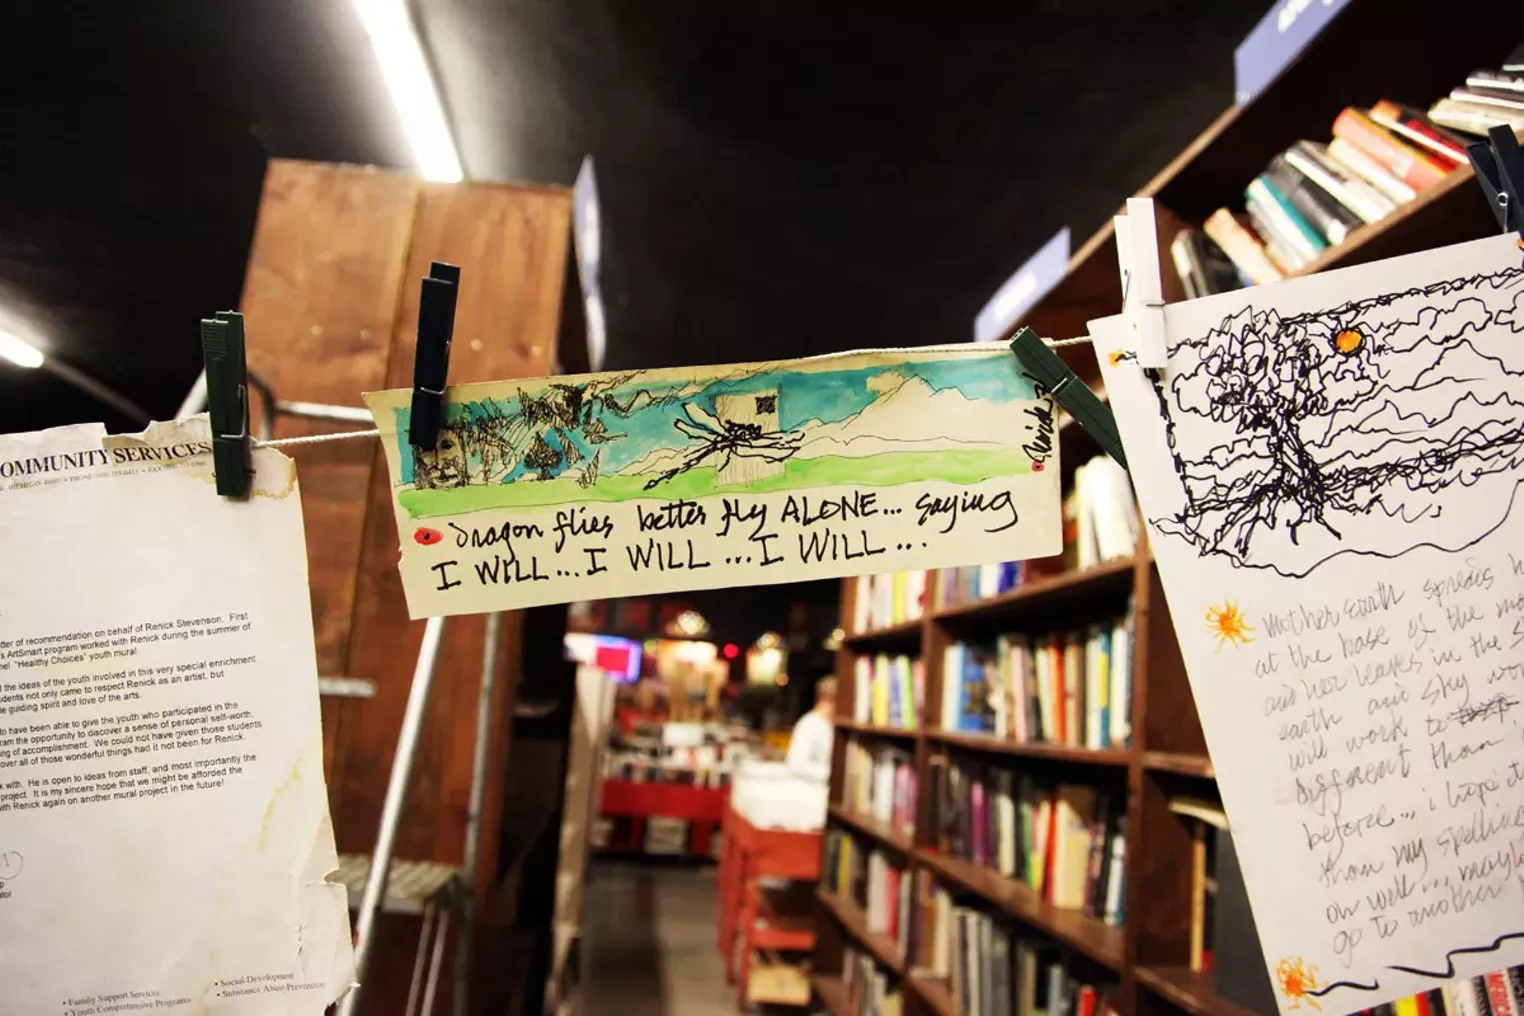 OMMUNITY SERVICES
tter of recommendation on behalf of Renick Stevenson. First
's ArtSmart program worked with Renick during the summer of
nel "Healthy Choices" youth mural.
d the ideas of the youth involved in this very special enrichment
udents not only came to respect Renick as an artist, but
e guiding spirit and love of the arts.
to have been able to give the youth who participated in the
ram the opportunity to discover a sense of personal self-worth,
ng of accomplishment. We could not have given those students
over all of those wonderful things had it not been for Renick.
k with. He is open to ideas from staff, and most importantly the
project. It is my sincere hope that we might be afforded the
ith Renick again on another mural project in the future!
ator
• Family Support Services
• Youth Comprehensive Programs
• Social Development
• Substance Abuse Prevention
Dragon flies better fly ALONE... saying
I WILL...I WILL...I WILL...
Mother earth spreads h
at the base of the mo
and her leaves in the s
earth and sky wor
will work to
different than
before... i hope it
than my spelling
oh well... maybe
go to another